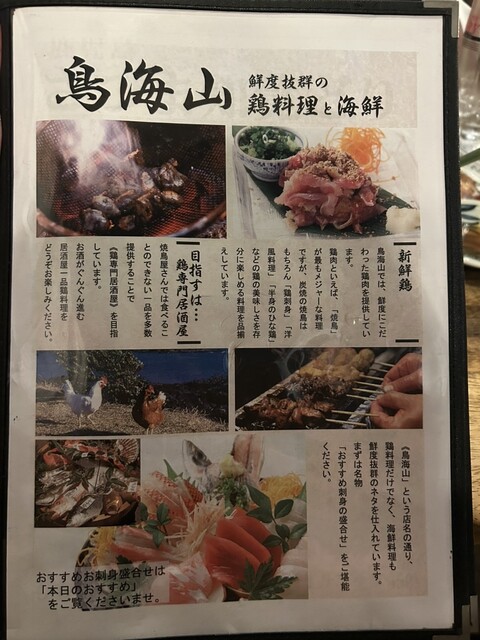 鳥海山
鮮度抜群の
鶏料理と海鮮
新鮮鶏
鳥海山では、鮮度にこだ
わった鶏肉を提供してい
ます。
鶏肉といえば、「焼鳥」
が最もメジャーな料理
ですが、炭焼の焼鳥は
もちろん「鶏刺身」「洋
風料理」「半身のひな鶏」
などの鶏の美味しさを存
分に楽しめる料理を品揃
えしています。
目指すは…
鶏専門居酒屋
焼鳥屋さんでは食べるこ
とのできない一品を多数
提供することで
《鶏専門居酒屋》を目指
しています。
お酒がぐんぐん進む
居酒屋一品鶏料理を
どうぞお楽しみください。
《鳥海山》という店名の通り、
鶏料理だけでなく、海鮮料理も
鮮度抜群のネタを仕入れています。
まずは名物
「おすすめ刺身の盛合せ」をご堪能
ください。
おすすめお刺身盛合せは
「本日のおすすめ」
をご覧くださいませ。